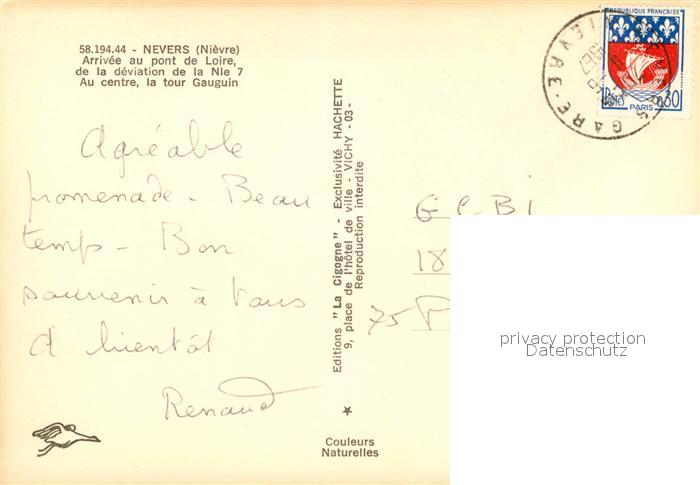 58.194.44 - NEVERS (Nièvre)
Arrivée au pont de Loire,
de la déviation de la Nle 7
Au centre, la tour Gauguin
Agréable
promenade - Beau
temps - Bon
souvenir à tous
A bientôt
Renaud
Editions "La Cigogne" - Exclusivité HACHETTE
9, place de l'hôtel de ville - VICHY - 03 -
Reproduction interdite
Couleurs
Naturelles
REPUBLIQUE FRANCAISE
POSTES
0,30
PARIS
GARE
NIEVRE
G C B I
18
75 P
privacy protection
Datenschutz